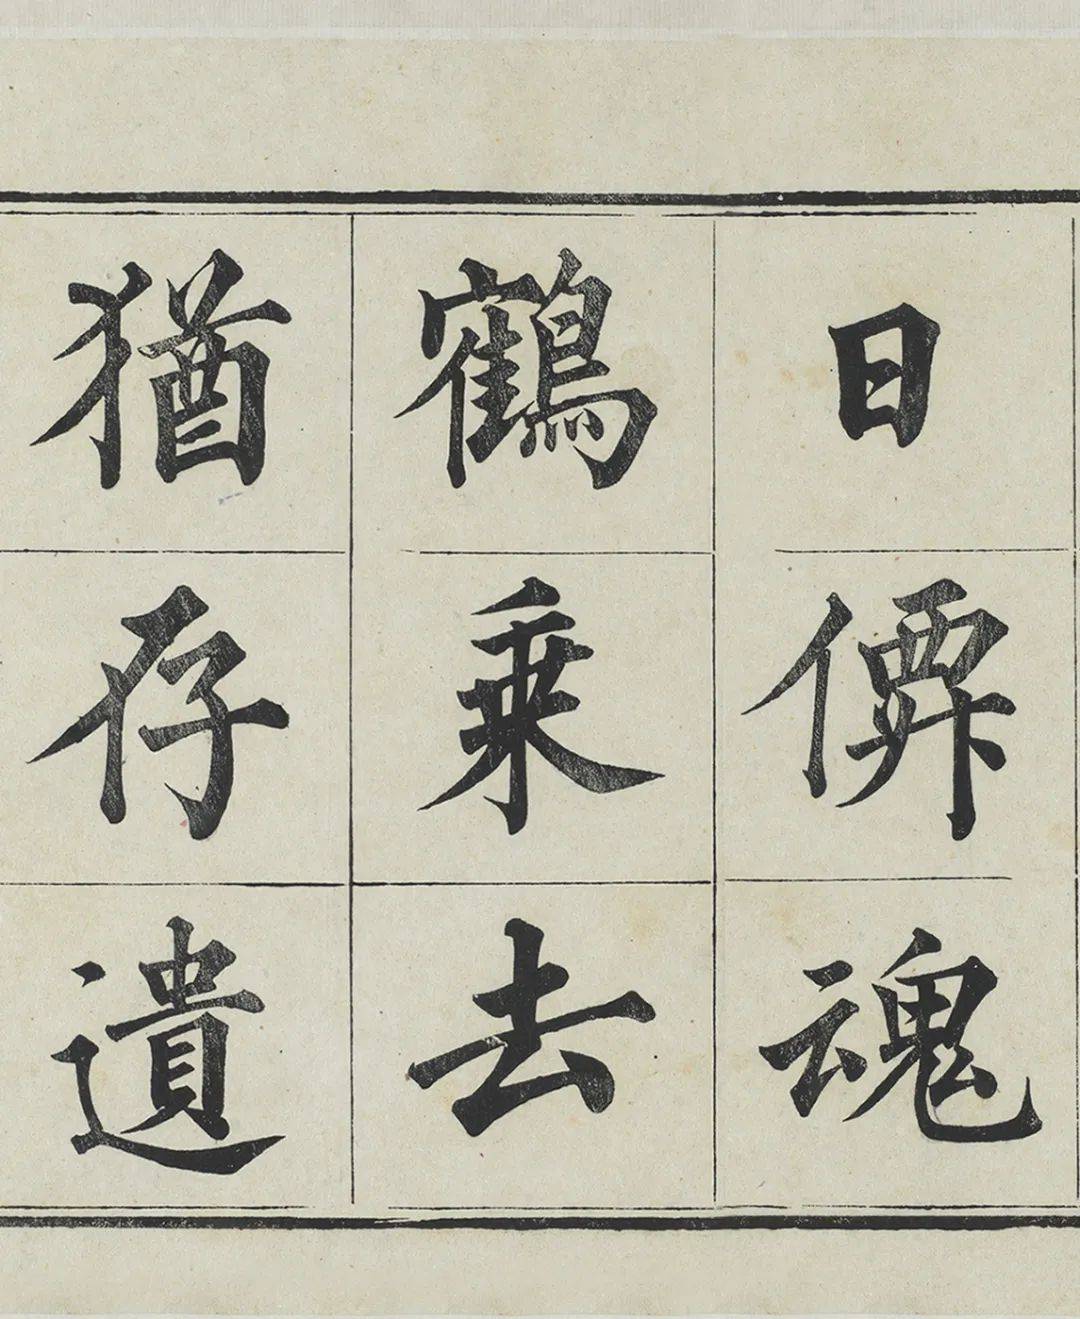 日僊魂
鶴乗去
猶存遺